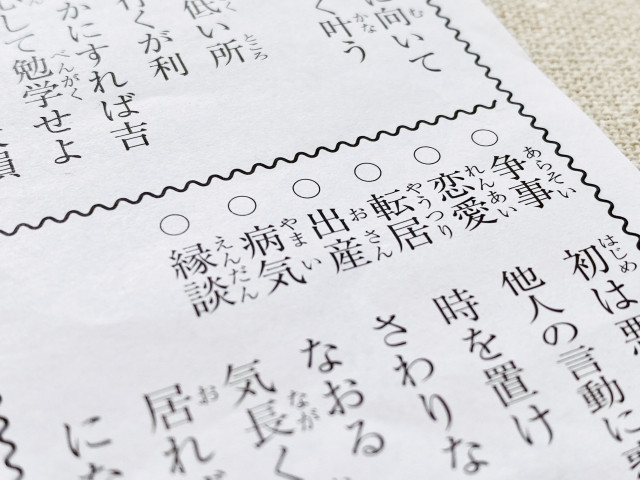 に向いて
く叶う
低い所
行くが利
かにすれば吉
して勉学せよ
損
○争事 初は悪
○恋愛 他人の言動に
○転居 時を置け
○出産 さわりな
○病気 なおる
気長く
○縁談
居れば
にな